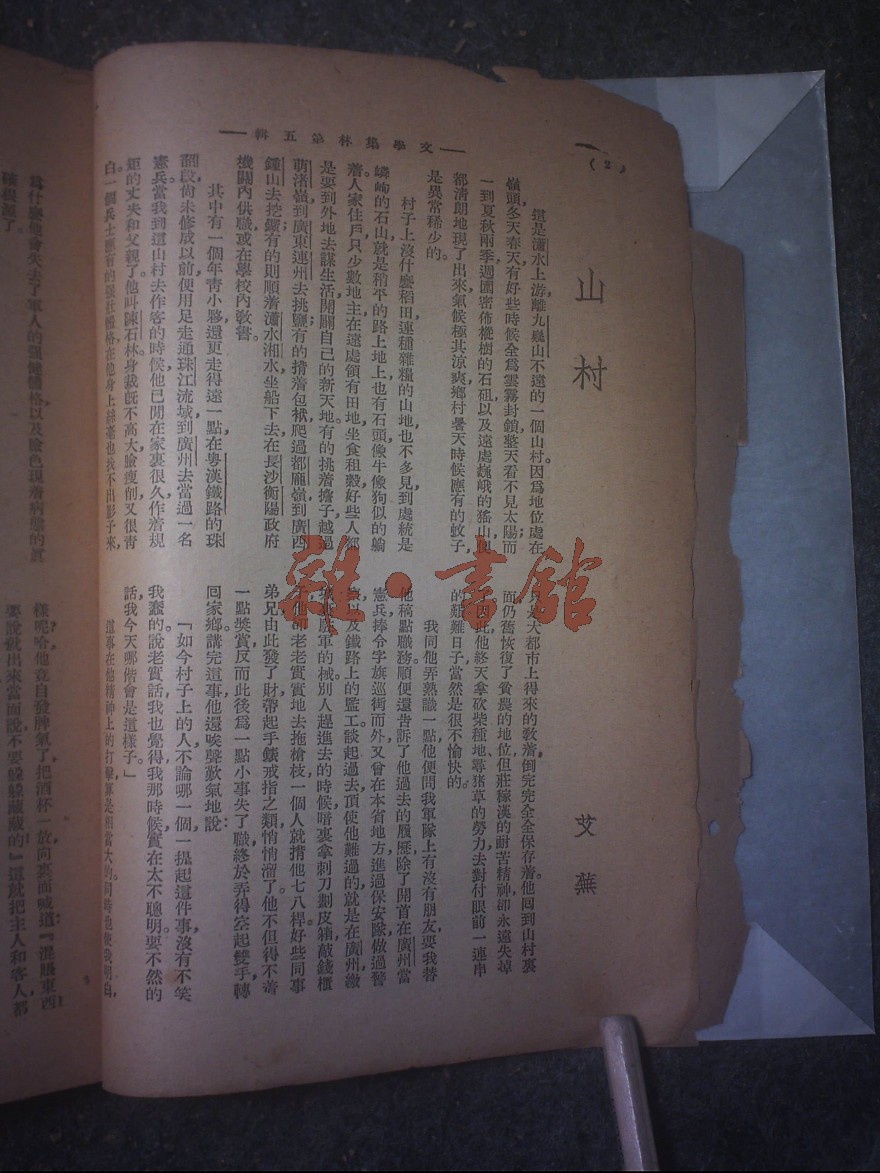 (2)
—文學集林第五輯—
山村
艾蕪
這是瀟水上游離九嶷山不遠的一個山村。因爲地位處在
嶺頭,冬天春天,有好些時候,全爲雲霧封鎖,整天看不見太陽;而
一到夏秋兩季,週圍密佈樅樹的石硪,以及遠處巍峨的猺山,
都淸朗地現了出來,氣候極其凉爽,鄉村暑天時候應有的蚊子,
是異常稀少的。
村子上沒什麼稻田,連種雜糧的山地也不多見,到處統是
嶙峋的石山,就是稍平的路上地上,也有石頭像牛像狗似的躺
着。人家住戶,只少數地主在遠處領有田地,坐食租穀,好些人都
是要到外地去謀生活,開闢自己的新天地,有的挑着擔子,越過
萌渚嶺到廣東連州去挑鹽;有的揹着包袱,爬過都龐嶺到廣西
鍾山去挖鑛;有的則順着瀟水湘水,坐船下去,在長沙衡陽政府
機關內供職,或在學校內敎書。
其中有一個年靑小夥,還更走得遠一點,在粤漢鐵路的珠
韶段尚未修成以前,便用足走通珠江流域,到廣州去當過一名
憲兵。當我到這山村去作客的時候,他已閒在家裏很久,作着規
矩的丈夫和父親了。他叫陳石林,身裁旣不高大,臉瘦削又很靑
白,一個兵士應有的強壯體格,在他身上,絲毫也找不出影子來,
只是大都市上得來的敎養,倒完完全全保存着。他囘到山村裏
面,仍舊恢復了貧農的地位,但莊稼漢的耐苦精神,卻永遠失掉
了。因此,他終天拿砍柴種地尋猪草的勞力,去對付眼前一連串
的艱難日子,當然是很不愉快的。
我同他弄熟識一點,他便問我軍隊上有沒有朋友,要我替
他稿點職務,順便還告訴了他過去的履歷,除了開首在廣州當
憲兵捧令字旗巡街而外,又曾在本省地方進過保安隊,做過警
察以及鐵路上的監工。談起過去頂使他難過的,就是在廣州繳
城裏駐軍的械,別人趕進去的時候,暗裏拿刺刀劃皮箱,敲錢櫃
子,他卻老老實實地去拖槍枝,一個人就揹他七八桿。好些同事
弟兄,由此發了財,帶起手錶戒指之類,悄悄溜了,他不但得不着
一點獎賞,反而此後爲一點小事,失了職,終於弄得空起雙手轉
囘家鄉。講完這事,他還唉聲歎氣地說:
「如今村子上的人,不論哪一個,一提起這件事,沒有不笑
我蠢的。說老實話,我也覺得我那時候,實在太不聰明。要不然的
話,我今天哪偕會是這樣子。」
這事在他精神上的打擊,算是相當大的。同時也使我明白,
爲什麼他會失去了軍人的強健體格,以及臉色現着病態的眞
確根源了。
樣呢?哈,他竟自發脾氣了,把酒杯一放,向裏面喊道:『混賬東西!
要說就出來當面說,不要躱躱藏藏的!』這就把主人和客人都